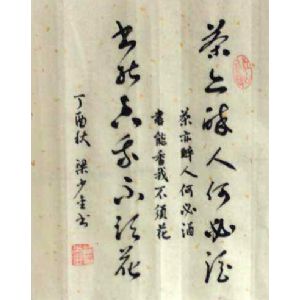 茶亦醉人何必酒
茶亦醉人何必酒
书能香我不须花
書能香我不須花
丁酉秋 梁少雲书